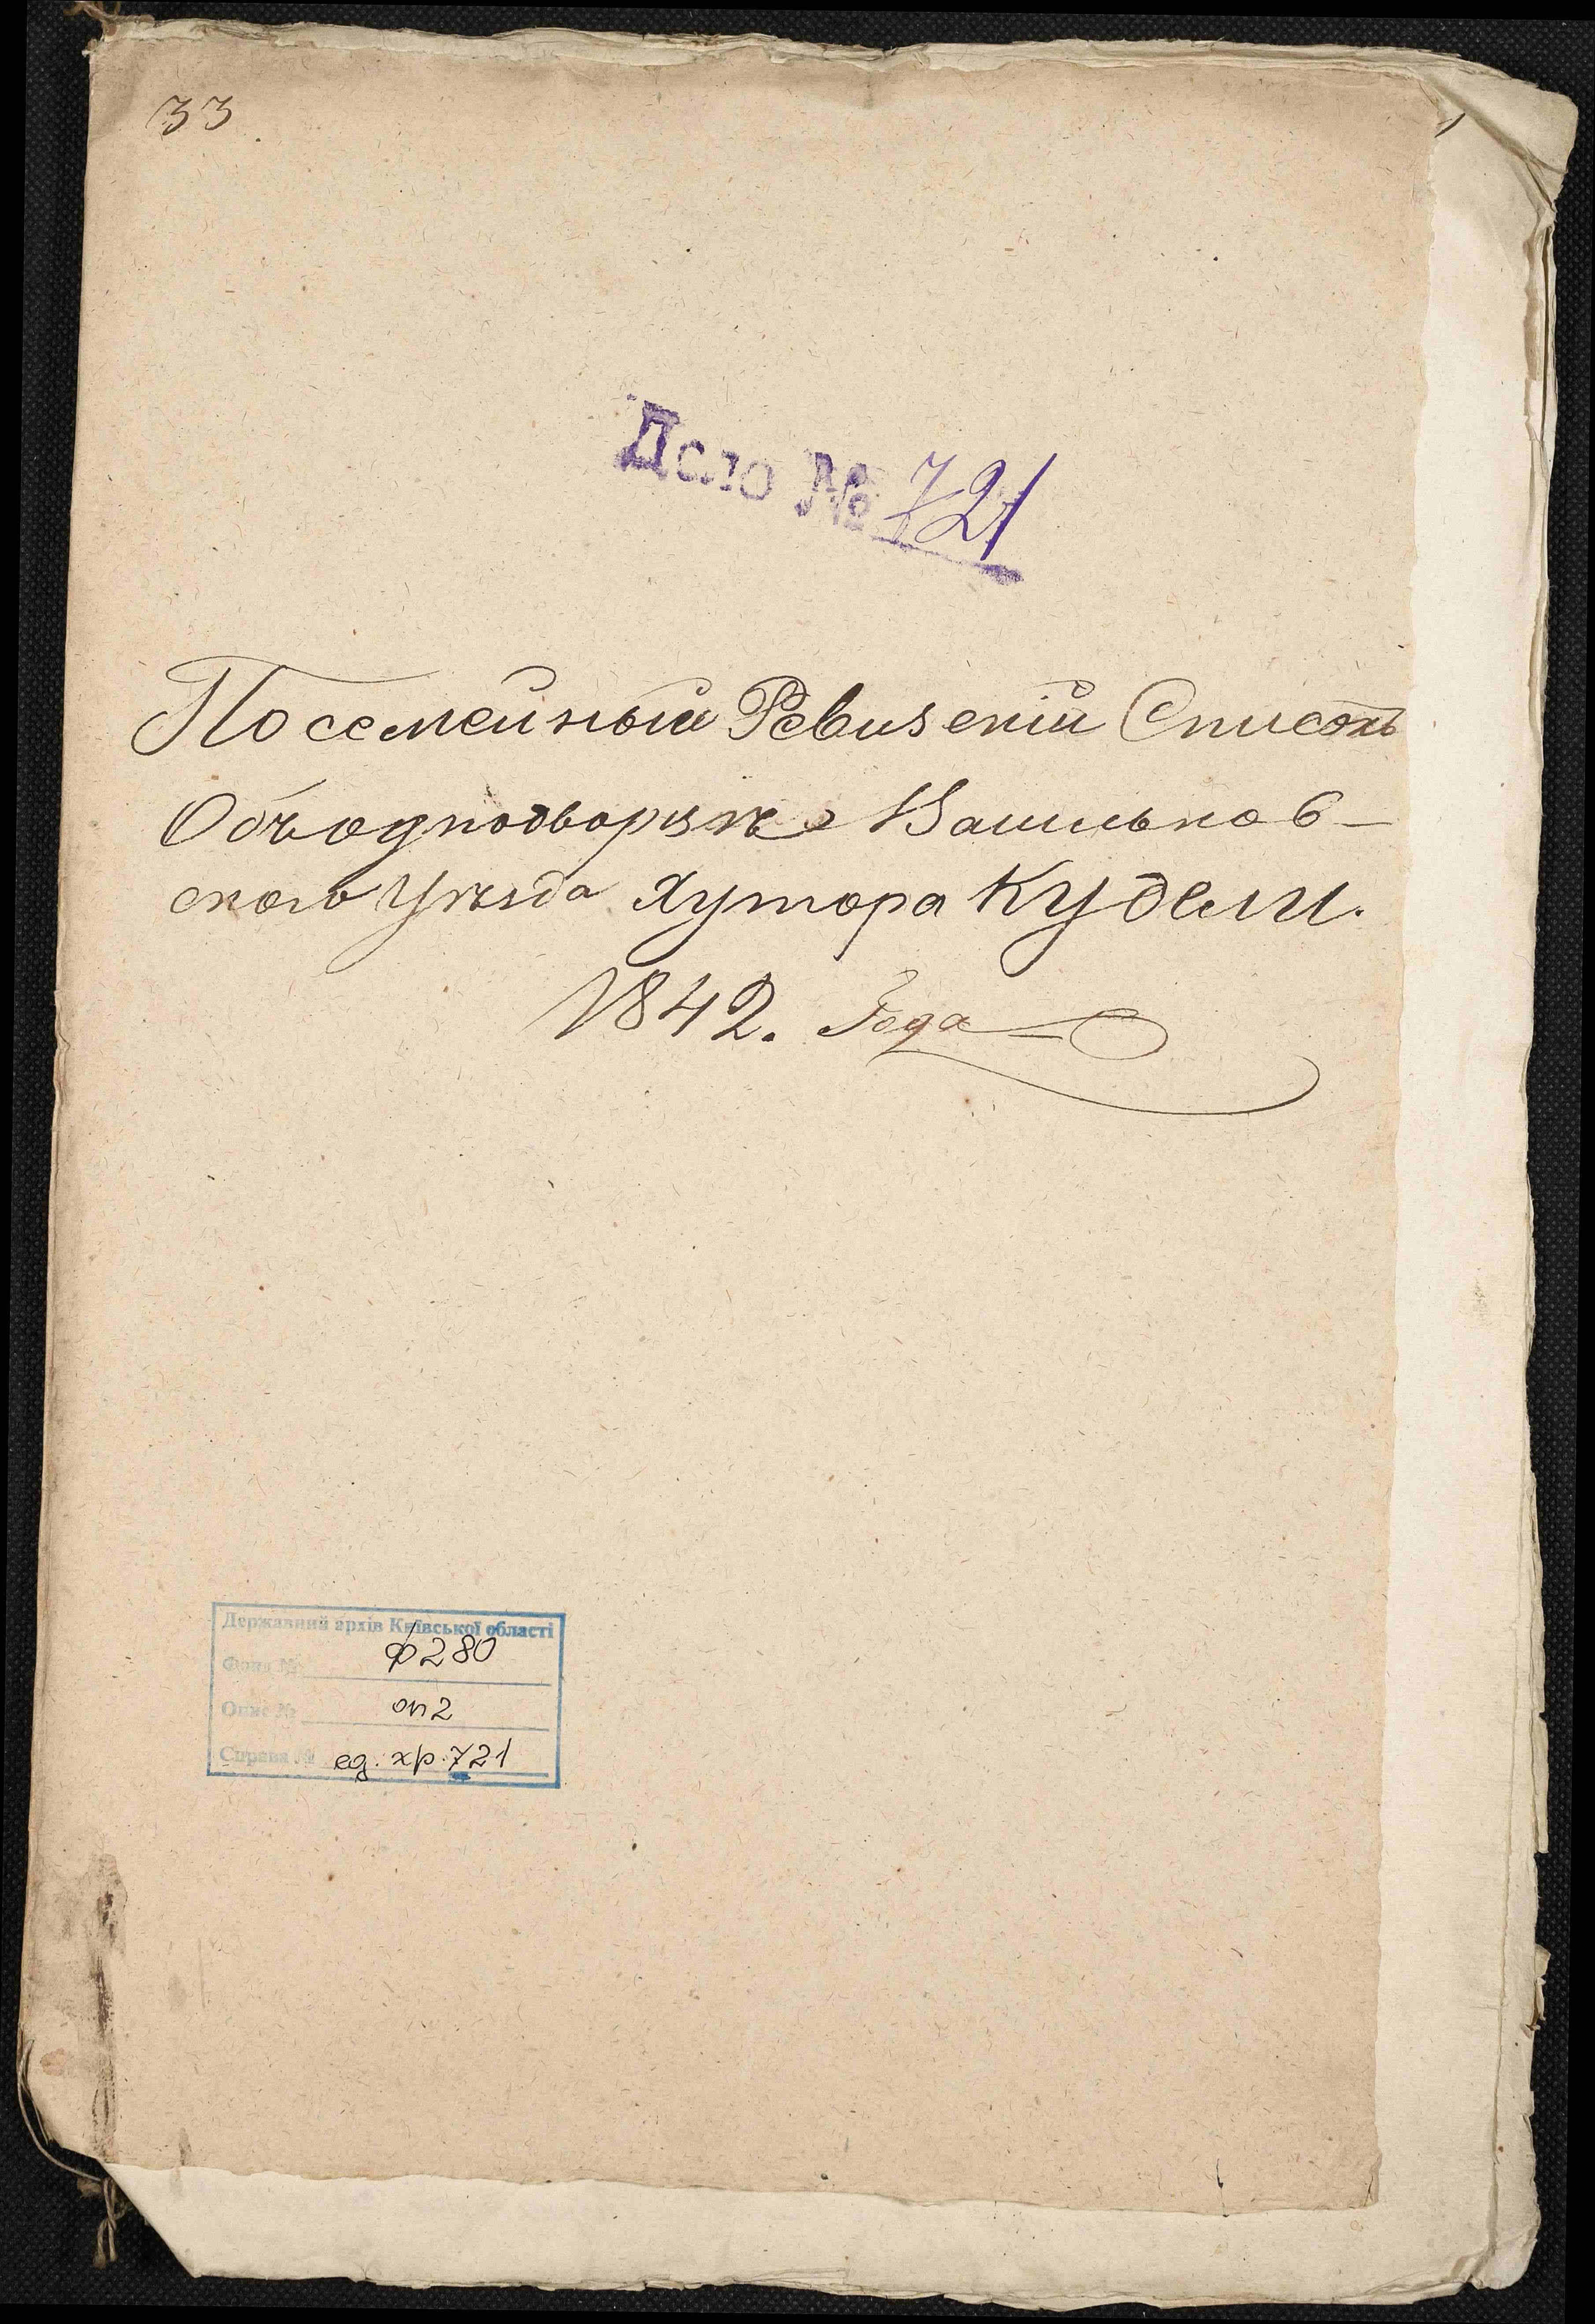 33
Дело № 721
Посемейный Ревизскій Списокъ
Объ однодворцахъ Васильков-
скаго Уѣзда Хутора Кудели.
1842. Года
Державний архів Київської області
Фонд № ф 280
Опис № оп 2
Справа № ед. хр. 721